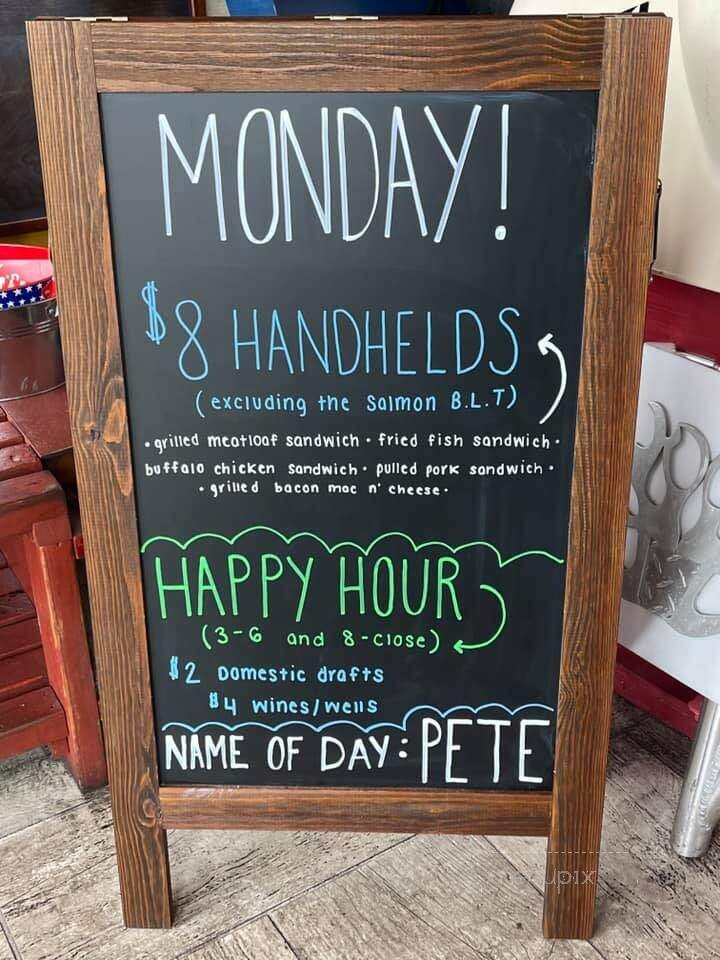 MONDAY!
$8 HANDHELDS
(excluding the Salmon B.L.T)
• grilled meatloaf sandwich • fried fish sandwich •
buffalo chicken sandwich • pulled pork sandwich •
• grilled bacon mac n' cheese •
HAPPY HOUR
(3-6 and 8-close)
$2 Domestic drafts
$4 wines/wells
NAME OF DAY: PETE